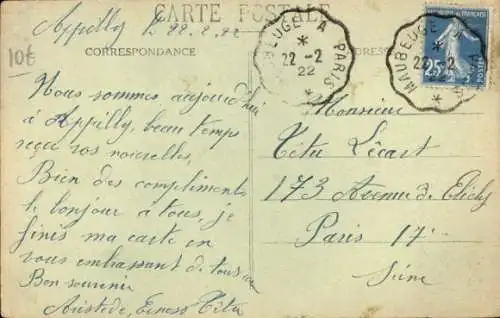 CARTE POSTALE
Appilly le 22.2.22
10€
CORRESPONDANCE
MAUBEUGE A PARIS
22-2
22
MAUBEUGE A
22-2
25c
Nous sommes aujourd'hui
à Appilly, beau temps
reçu vos nouvelles,
Bien des compliments
le bonjour à tous, je
finis ma carte en
vous embrassant de tous
Bon souvenir
Aristide, Ernest Titu
Monsieur
Titu Lécart
173 Avenue de Clichy
Paris 17
Seine